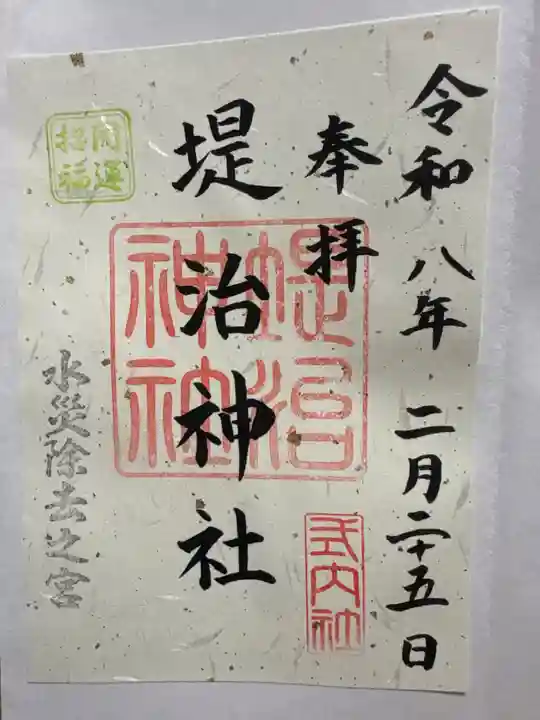 令和八年二月二十五日
奉拝
式内社
堤治神社
堤治神社
開運招福
水災除去之宮